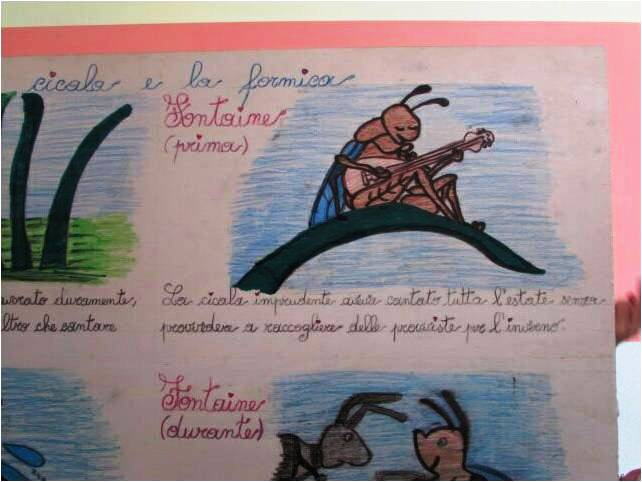 cicala e la formica
Fontaine
(prima)
avorato duramente,
ltro che cantare
La cicala imprudente aveva cantato tutta l'estate senza
provvedere a raccogliere delle provviste per l'inverno.
Fontaine
(durante)